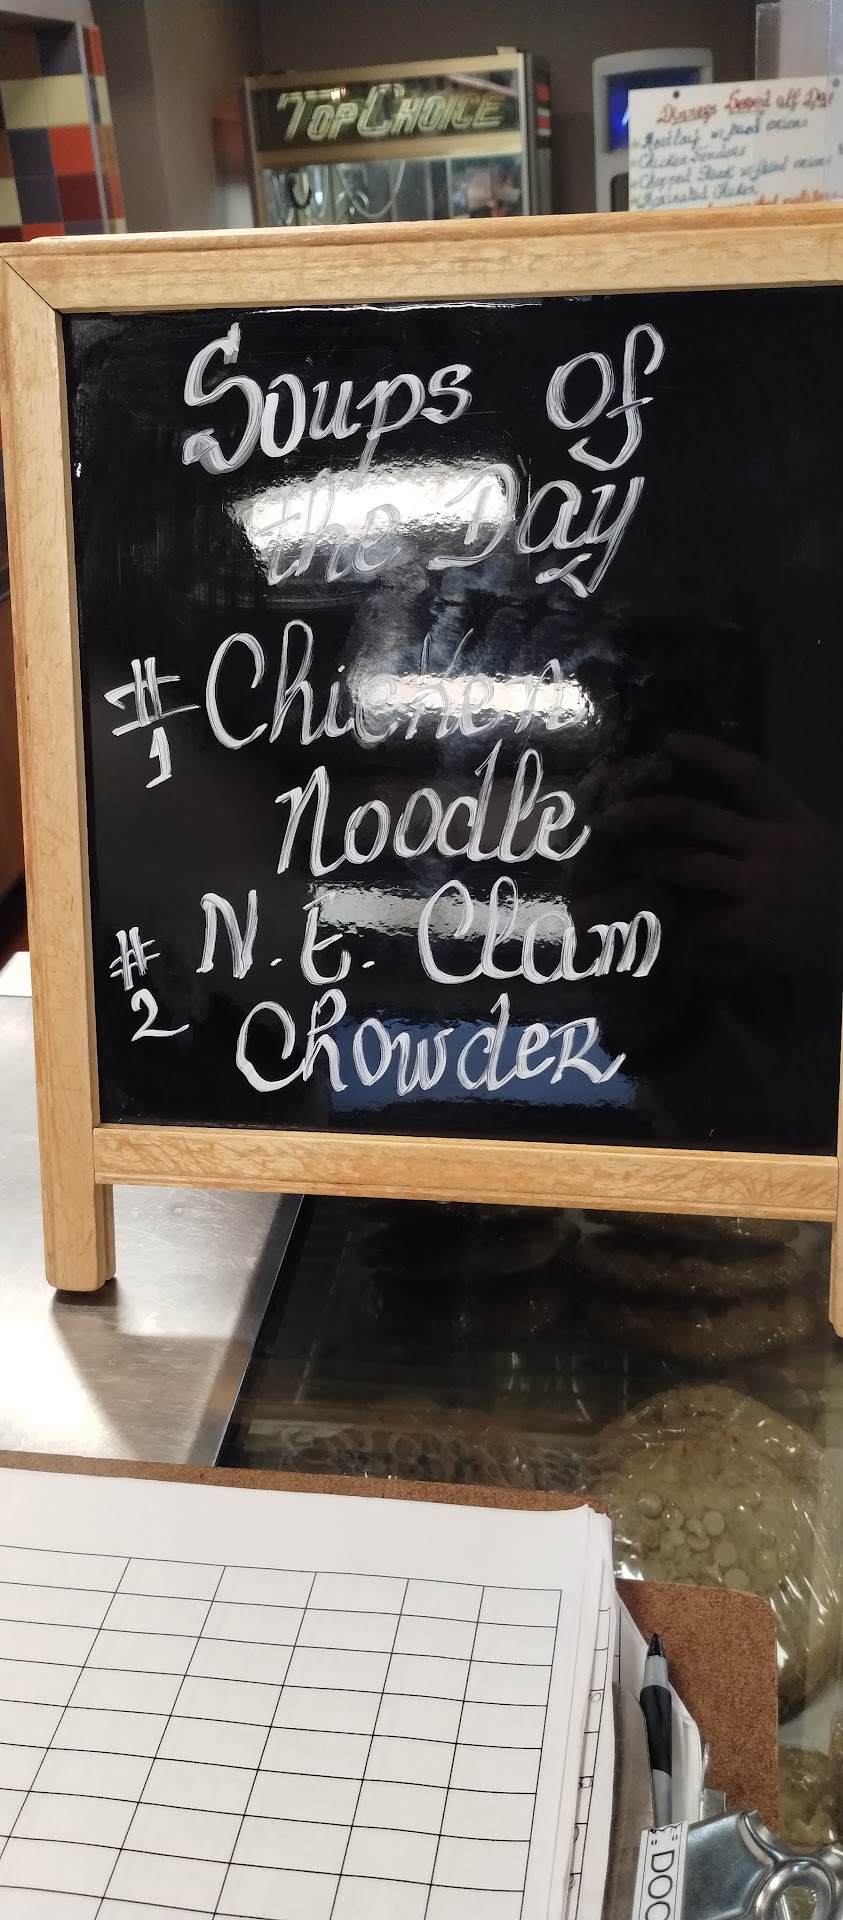 TOPCHOICE
Dinners Served all Day
Meatloaf w/fried onions
Chicken Tenders
Chopped Steak w/fried onions
Marinated Chicken
Soups of
the Day
#1 Chicken
Noodle
#2 N.E. Clam
Chowder
DOC